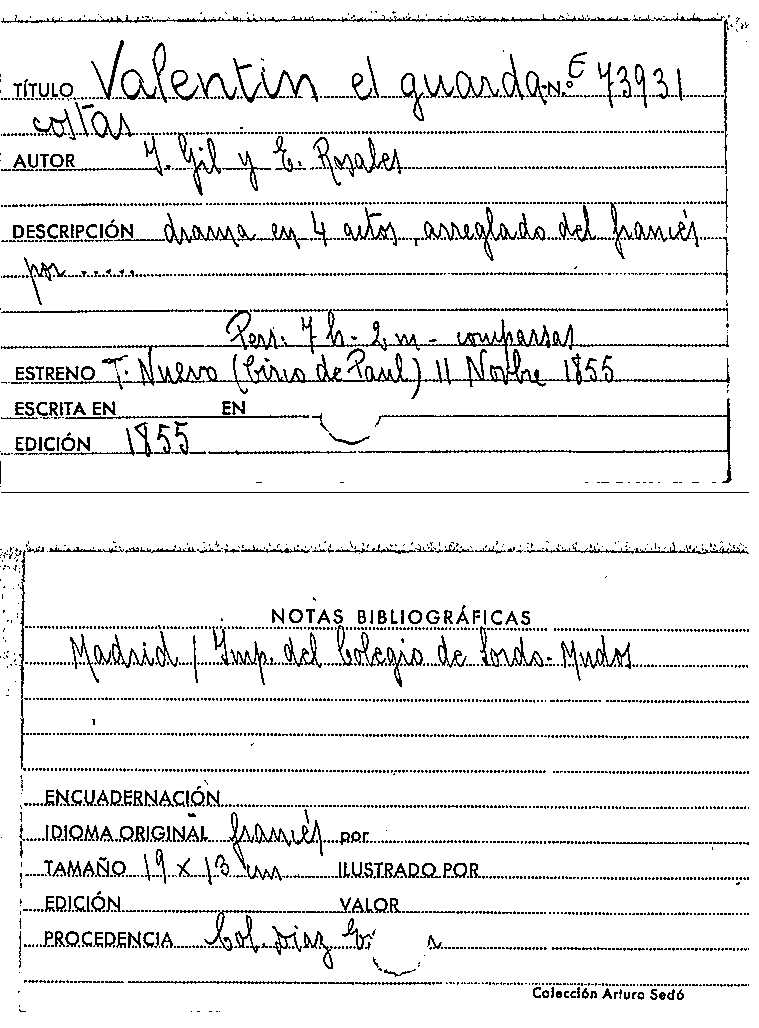 TÍTULO Valentin el guarda- N.º E 73931
costas
AUTOR J. Gil y E. Rosales
DESCRIPCIÓN drama en 4 actos, arreglado del francés
por .....
Pers: 7 h - 2 m - comparsas
ESTRENO T. Nuevo (Circo de Paul) 11 Novbre 1855
ESCRITA EN EN
EDICIÓN 1855
NOTAS BIBLIOGRÁFICAS
Madrid / Imp. del Colegio de Sordo-Mudos
ENCUADERNACIÓN
IDIOMA ORIGINAL francés por
TAMAÑO 19 x 13 cm ILUSTRADO POR
EDICIÓN VALOR
PROCEDENCIA Col. Diaz
Colección Arturo Sedó